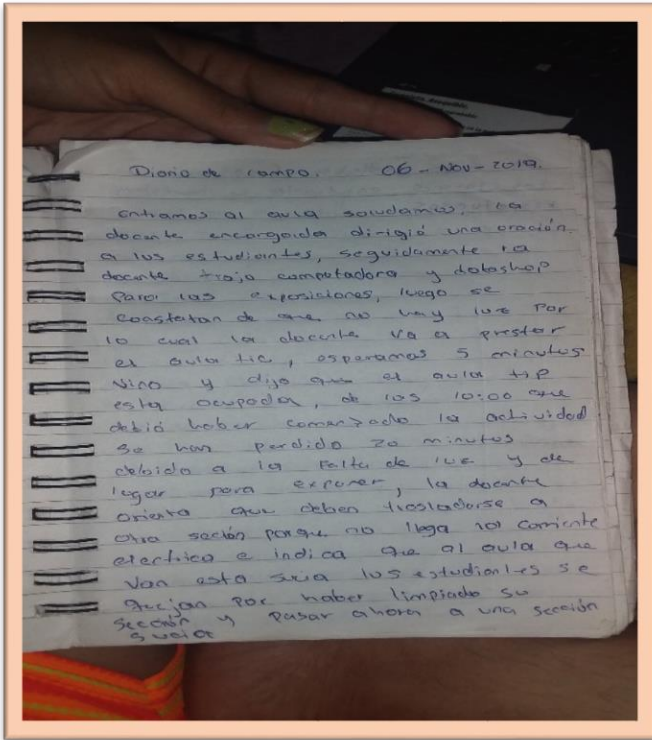 Diario de campo. 06-Nov-2019.
entramos al aula saludamos, la
docente encargada dirigió una oración.
a los estudiantes, seguidamente la
docente trajo computadora y datashop
para las exposiciones, luego se
constatan de que no hay luz por
lo cual la docente va a prestar
el aula tic, esperamos 5 minutos
vino y dijo que el aula tip
esta ocupada, de las 10:00 que
debió haber comenzado la actividad
se han perdido 20 minutos
debido a la falta de luz y de
lugar para exponer, la docente
orienta que deben trasladarse a
otra sección porque no llega la corriente
electrica e indica que al aula que
van esta sucia los estudiantes se
quejan por haber limpiado su
sección y pasar ahora a una sección
sucia